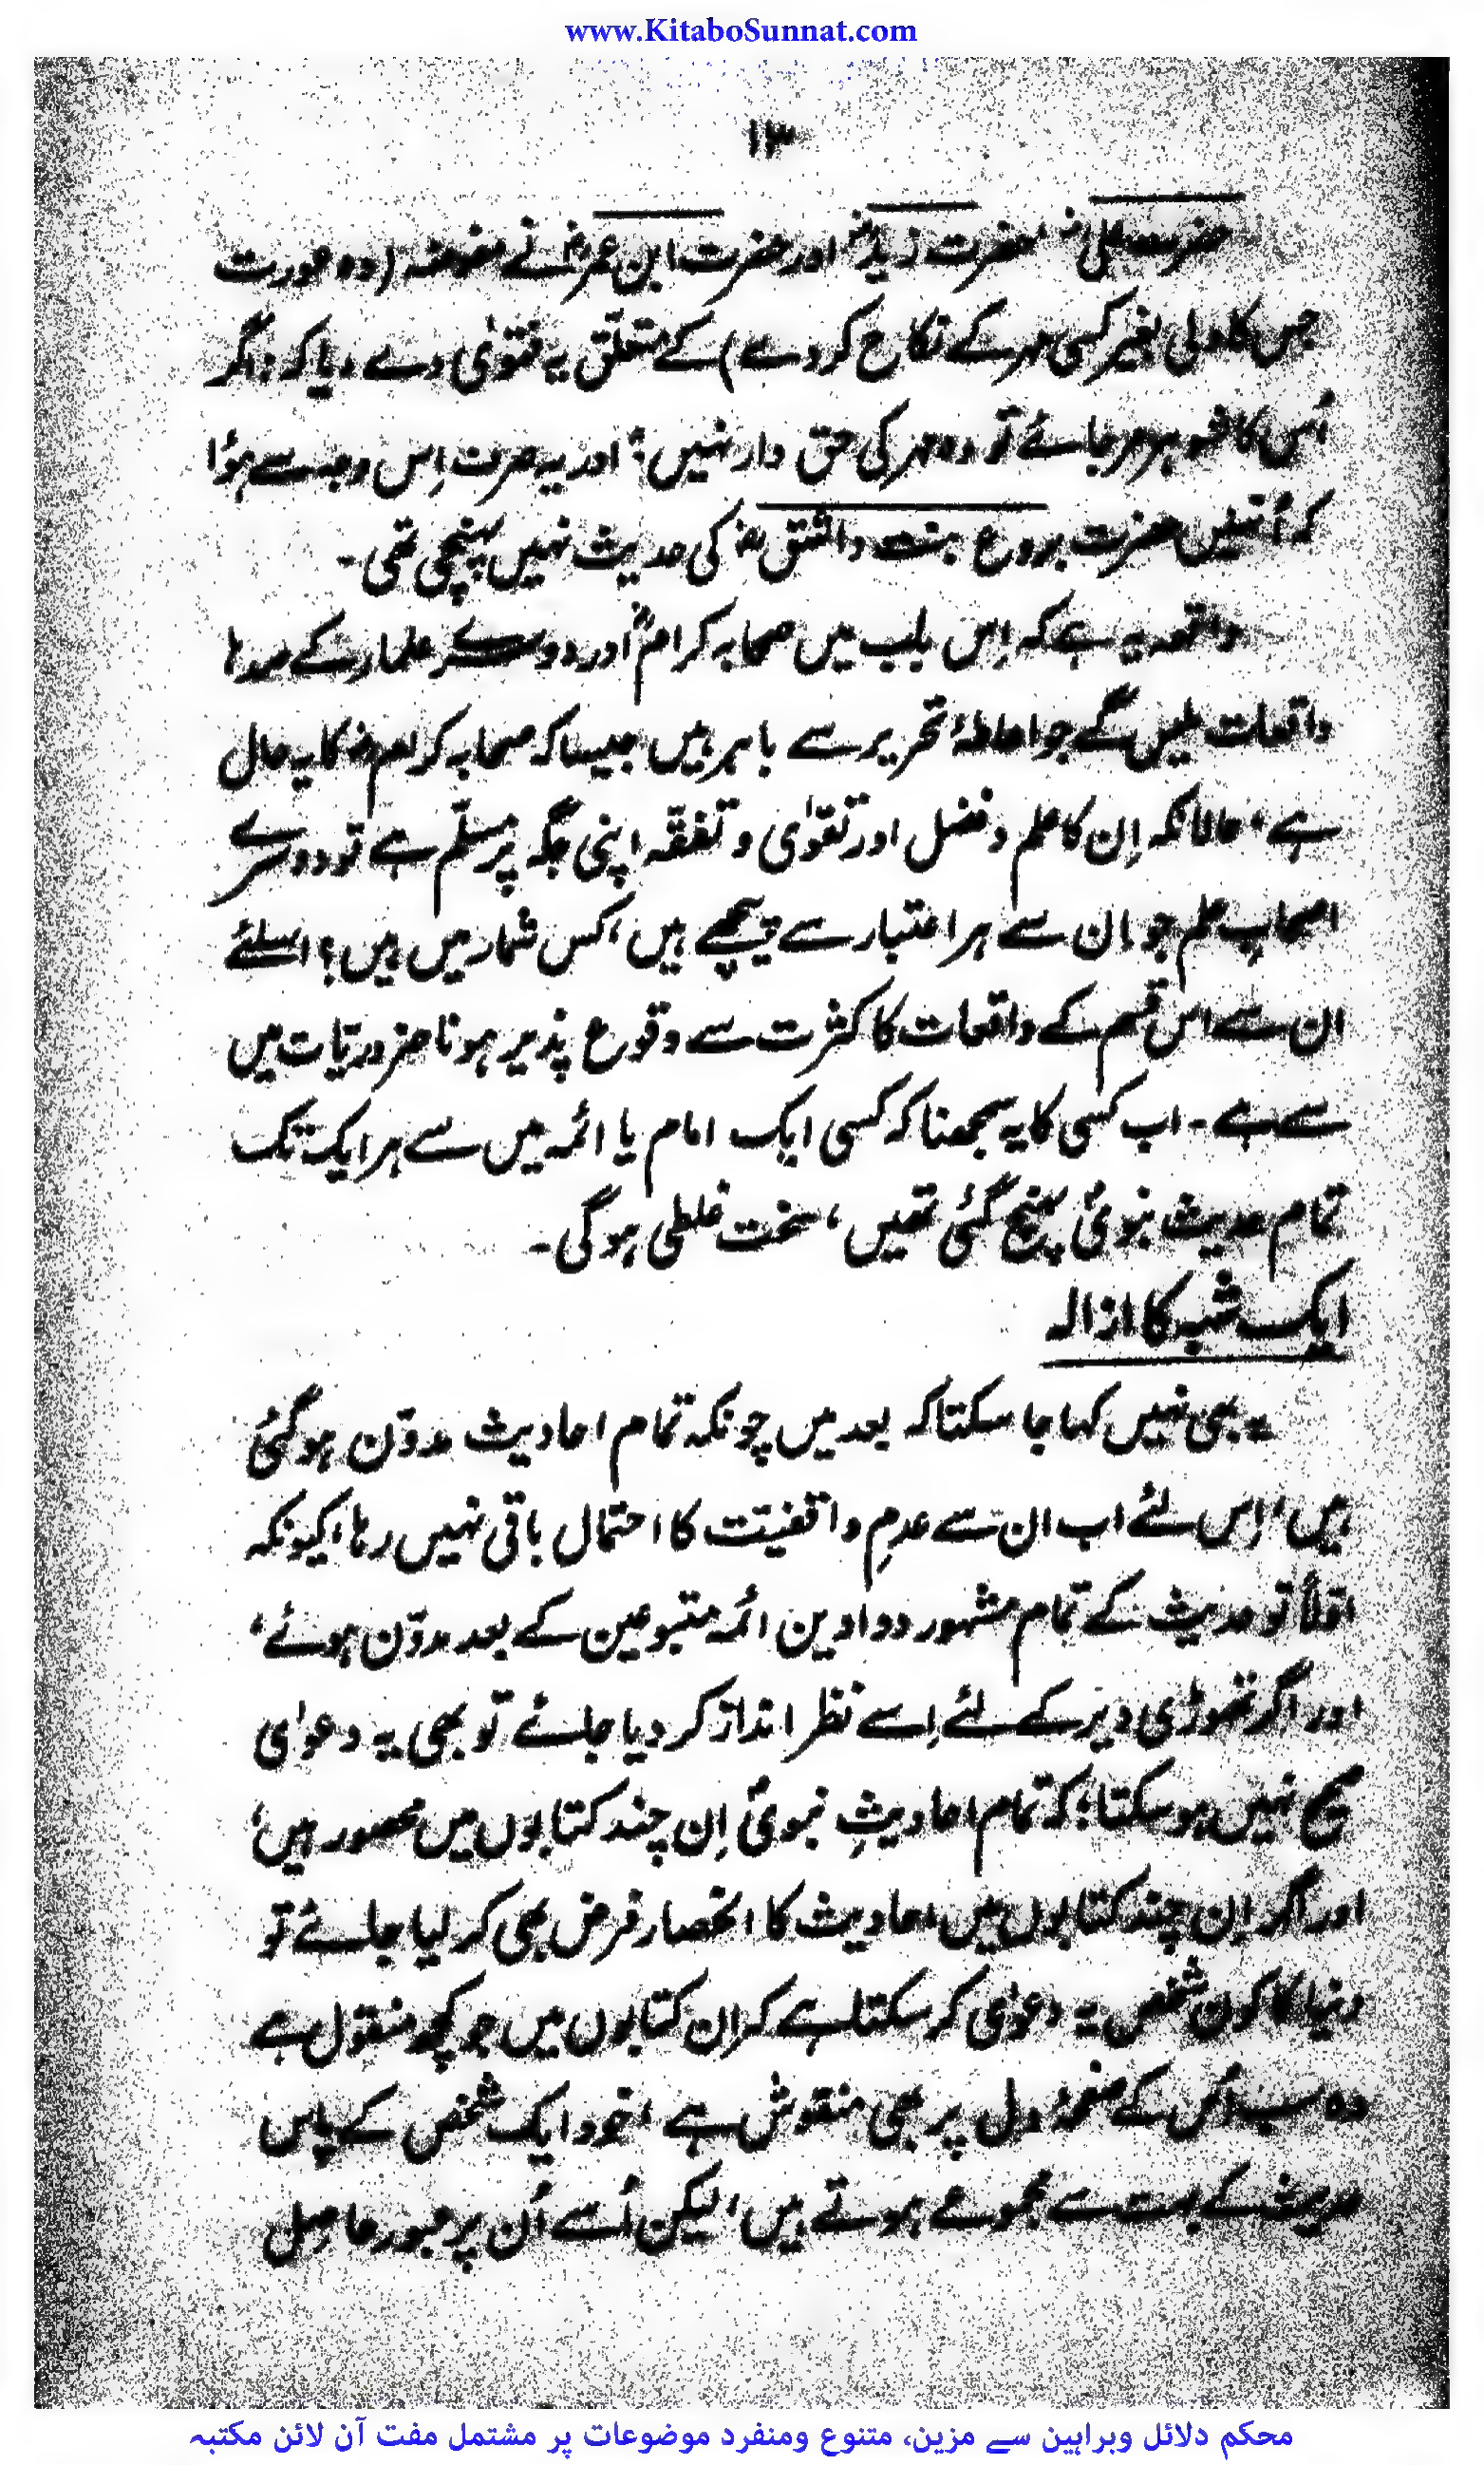 www.KitaboSunnat.com
۱۳
حضرت علیؓ، حضرت زیدؓ اور حضرت ابن عمرؓ نے مفوضہ (وہ عورت
جس کا ولی بغیر کسی مہر کے نکاح کر دے) کے متعلّق یہ فتویٰ دے دیا کہ: اگر
اُس کا شوہر مر جائے تو وہ مہر کی حق دار نہیں؛ اور یہ صرف اِس وجہ سے ہوٗا
کہ اُنھیں حضرت بروع بنت واشقؓ کی حدیث نہیں پہنچی تھی۔
واقعہ یہ ہے کہ اِس باب میں صحابہ کرامؓ اور دوسرے علماء کے صدہا
واقعات ملیں گے جو احاطۂ تحریر سے باہر ہیں جیسا کہ صحابہ کرامؓ کا یہ حال
ہے، حالانکہ اِن کا علم و فضل اور تقوٰی و تفقّہ اپنی جگہ پر مسلّم ہے تو دوسرے
اصحابِ علم جو اِن سے ہر اعتبار سے پیچھے ہیں، کس شمار میں ہیں؟ اسلئے
ان سے اس قسم کے واقعات کا کثرت سے وقوع پذیر ہونا ضروریّات میں
سے ہے۔ اب کسی کا یہ سمجھنا کہ کسی ایک امام یا ائمہ میں سے ہر ایک تک
تمام حدیث نبویؐ پہنچ گئی تھیں، سخت غلطی ہوگی۔
ایک شبہ کا ازالہ
یہ بھی نہیں کہا جا سکتا کہ بعد میں چونکہ تمام احادیث مدوّن ہو گئی
ہیں، اِس لئے اب ان سے عدمِ واقفیّت کا احتمال باقی نہیں رہا، کیونکہ
اوّلاً تو حدیث کے تمام مشہور دواوین ائمہ متبوعین کے بعد مدوّن ہوئے،
اور اگر تھوڑی دیر کے لئے اِسے نظر انداز کر دیا جائے تو بھی یہ دعوٰی
صحیح نہیں ہو سکتا؛ کہ تمام احادیثِ نبویؐ اِن چند کتابوں میں محصور ہیں،
اور اگر اِن چند کتابوں میں احادیث کا انحصار فرض بھی کر لیا جائے تو
دنیا کا کون شخص یہ دعوٰی کر سکتا ہے کہ اِن کتابوں میں جو کچھ منقول ہے
وہ سب اُس کے صفحۂ دل پر بھی منقوش ہے، خود ایک شخص کے پاس
حدیث کے بہت سے مجموعے ہوتے ہیں، لیکن اُسے اُن پر عبور حاصل
محکم دلائل وبراہین سے مزین، متنوع ومنفرد موضوعات پر مشتمل مفت آن لائن مکتبہ